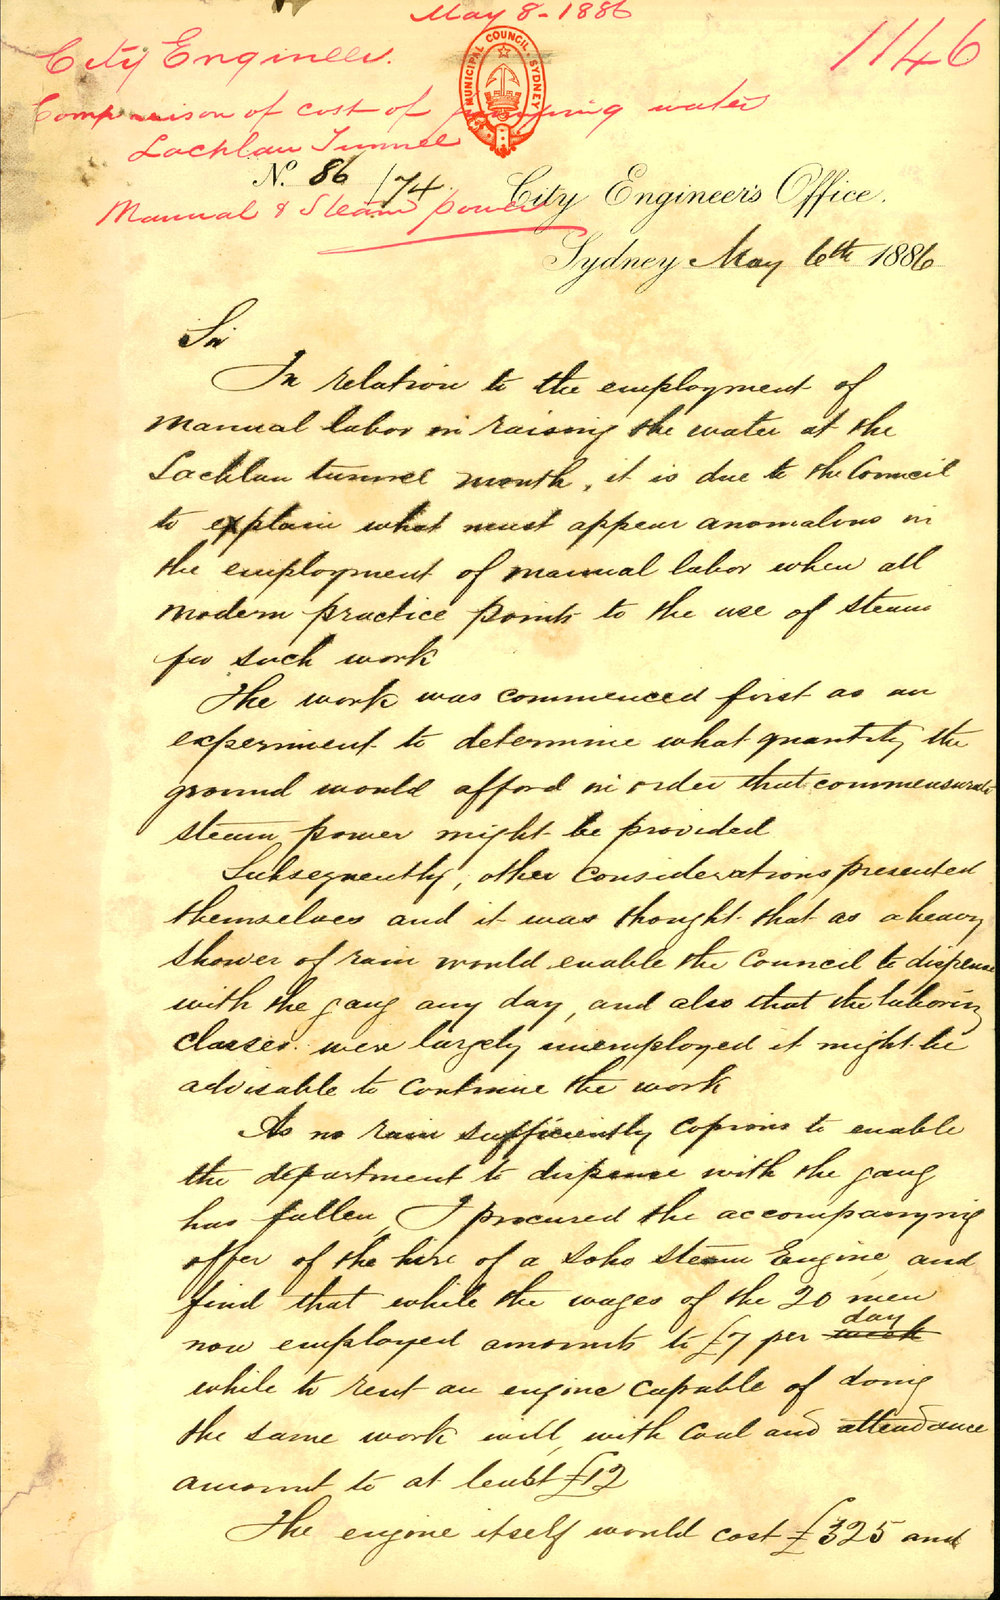 May 8-1886
1146
City Engineer.
MUNICIPAL COUNCIL. SYDNEY
Comparison of cost of pumping water
Lachlan Tunnel
Manual & Steam power
No. 86/74.
City Engineer's Office.
Sydney May 6th 1886
Sir
In relation to the employment of
manual labor in raising the water at the
Lachlan tunnel mouth, it is due to the Council
to explain what must appear anomalous in
the employment of manual labor when all
modern practice points to the use of steam
for such work
The work was commenced first as an
experiment to determine what quantity the
ground would afford in order that commensurate
steam power might be provided
Subsequently, other considerations presented
themselves and it was thought that as a heavy
shower of rain would enable the Council to dispense
with the gang any day, and also that the laboring
classes were largely unemployed it might be
advisable to continue the work
As no rain sufficiently copious to enable
the department to dispense with the gang
has fallen, I procured the accompanying
offer of the hire of a Soho steam Engine, and
find that while the wages of the 20 men
now employed amounts to £7 per week day
while to rent an engine capable of doing
the same work will, with Coal and attendance
amount to at least £12
The engine itself would cost £325 and